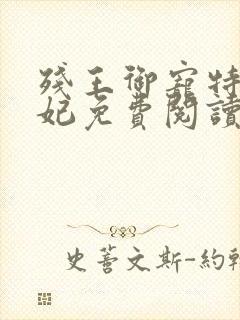 殘王御寵特
妃免費閱讀
史蒂文斯-約翰